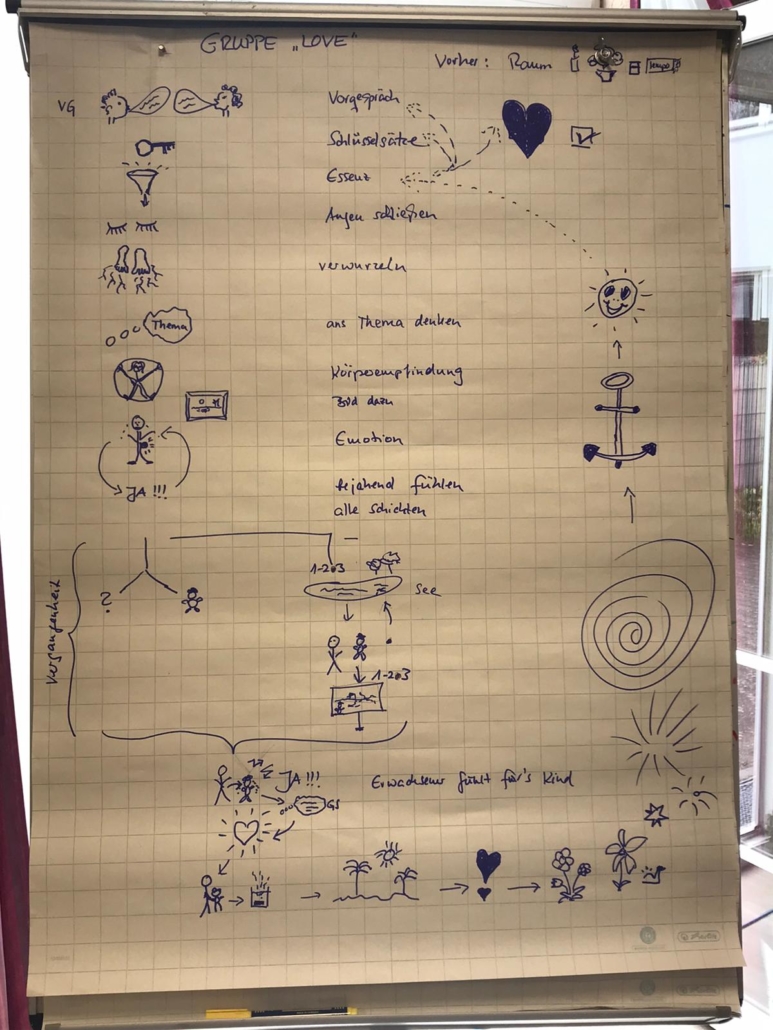 GRUPPE „LOVE"
Vorher: Raum
VG
Vorgespräch
Schlüsselsätze
Essenz
Augen schließen
verwurzeln
Thema
ans Thema denken
Körperempfindung
Bild dazu
Emotion
JA !!!
bejahend fühlen
alle Schichten
Vergangenheit
?
1-2-3
See
1-2-3
JA !!!
Erwachsener fühlt für's Kind
GS